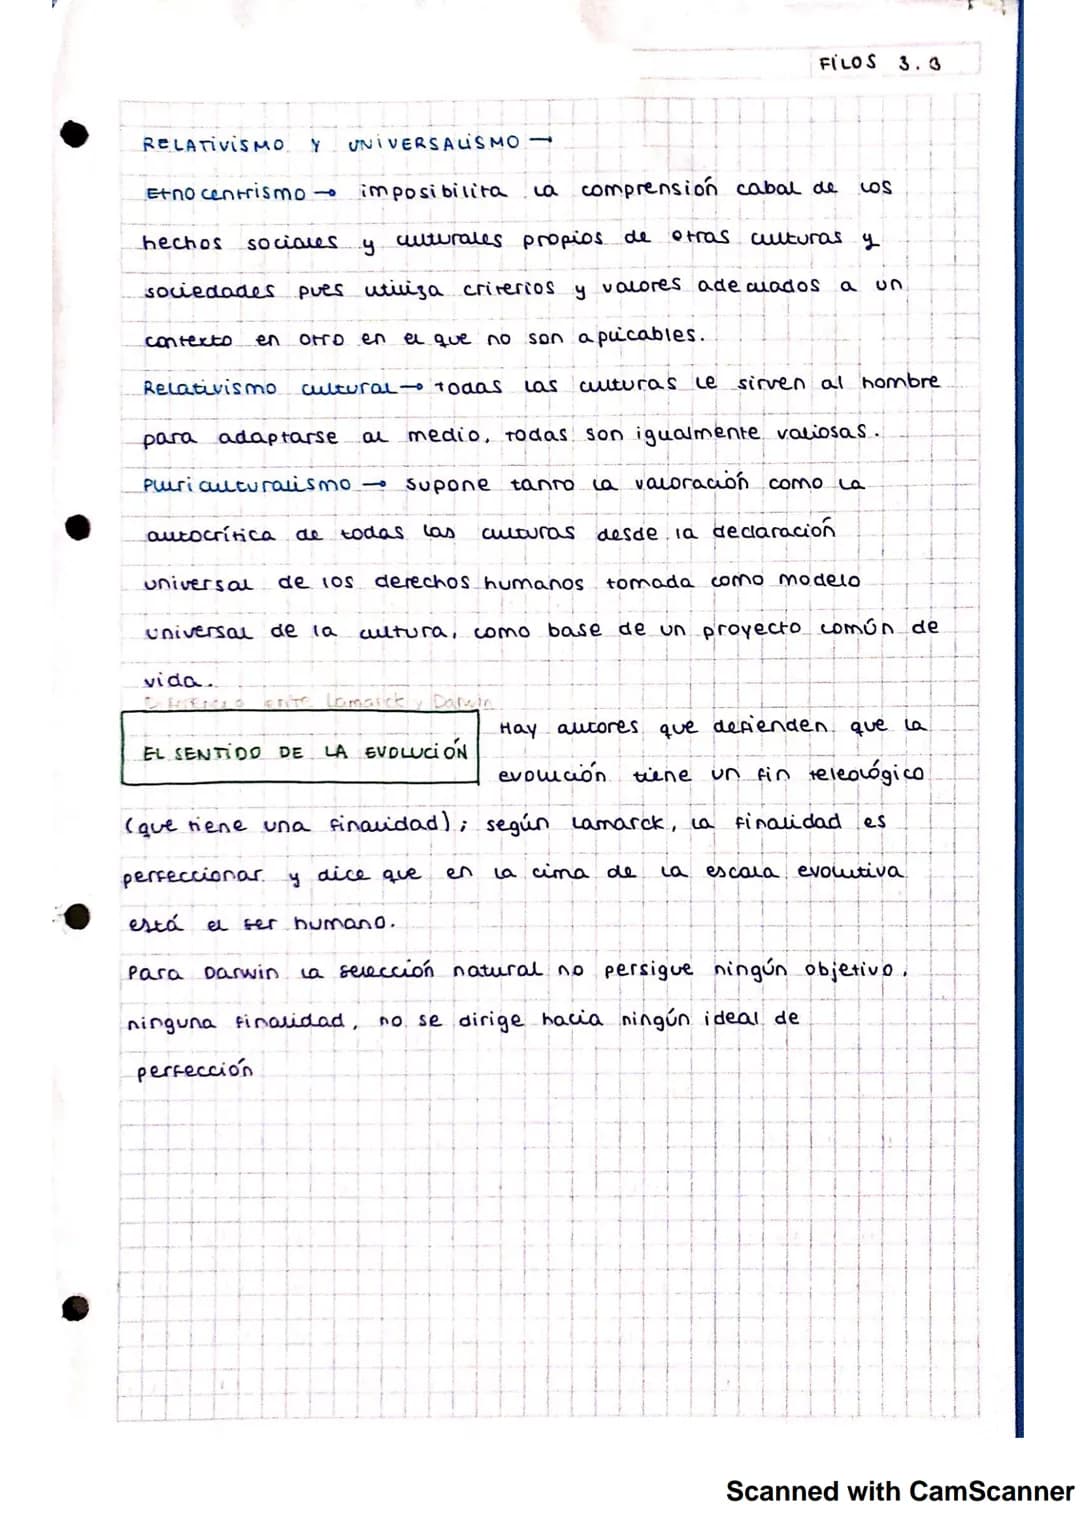 FILOS 3.3
RELATIVISMO Y UNIVERSALISMO →
Etnocentrismo → imposibilita la comprensión cabal de los
hechos sociales y culturales propios de otras culturas y
sociedades pues utiliza criterios y valores adecuados a un
contexto en otro en el que no son aplicables.
Relativismo cultural → todas las culturas le sirven al hombre
para adaptarse al medio, todas son igualmente valiosas.
Pluriculturalismo → supone tanto la valoración como la
autocrítica de todas las culturas desde la declaración
universal de los derechos humanos tomada como modelo
universal de la cultura, como base de un proyecto común de
vida.
Diferencia entre Lamarck y Darwin
EL SENTIDO DE LA EVOLUCIÓN
Hay autores que defienden que la
evolución tiene un fin teleológico
(que tiene una finalidad); según Lamarck, la finalidad es
perfeccionar y dice que en la cima de la escala evolutiva
está el ser humano.
Para Darwin la selección natural no persigue ningún objetivo,
ninguna finalidad, no se dirige hacia ningún ideal de
perfección
Scanned with CamScanner